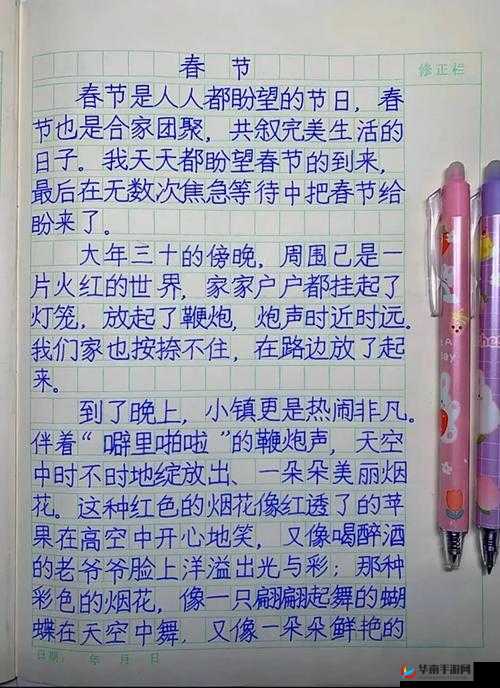 春节
修正栏
春节是人人都盼望的节日，春
节也是合家团聚，共叙完美生活的
日子。我天天都盼望春节的到来，
最后在无数次焦急等待中把春节给
盼来了。
大年三十的傍晚，周围己是一
片火红的世界，家家户户都挂起了
灯笼，放起了鞭炮，炮声时近时远。
我们家也按捺不住，在路边放了起
来。
到了晚上，小镇更是热闹非凡。
伴着“噼里啪啦”的鞭炮声，天空
中时不时地绽放出、一朵朵美丽烟
花。这种红色的烟花像红透了的苹
果在高空中开心地笑，又像喝醉酒
的老爷爷脸上洋溢出光与彩；那种
彩色的烟花，像一只翩翩起舞的蝴
蝶在天空中舞，又像一朵朵鲜艳的
日期： 年 月 日
华南手游网